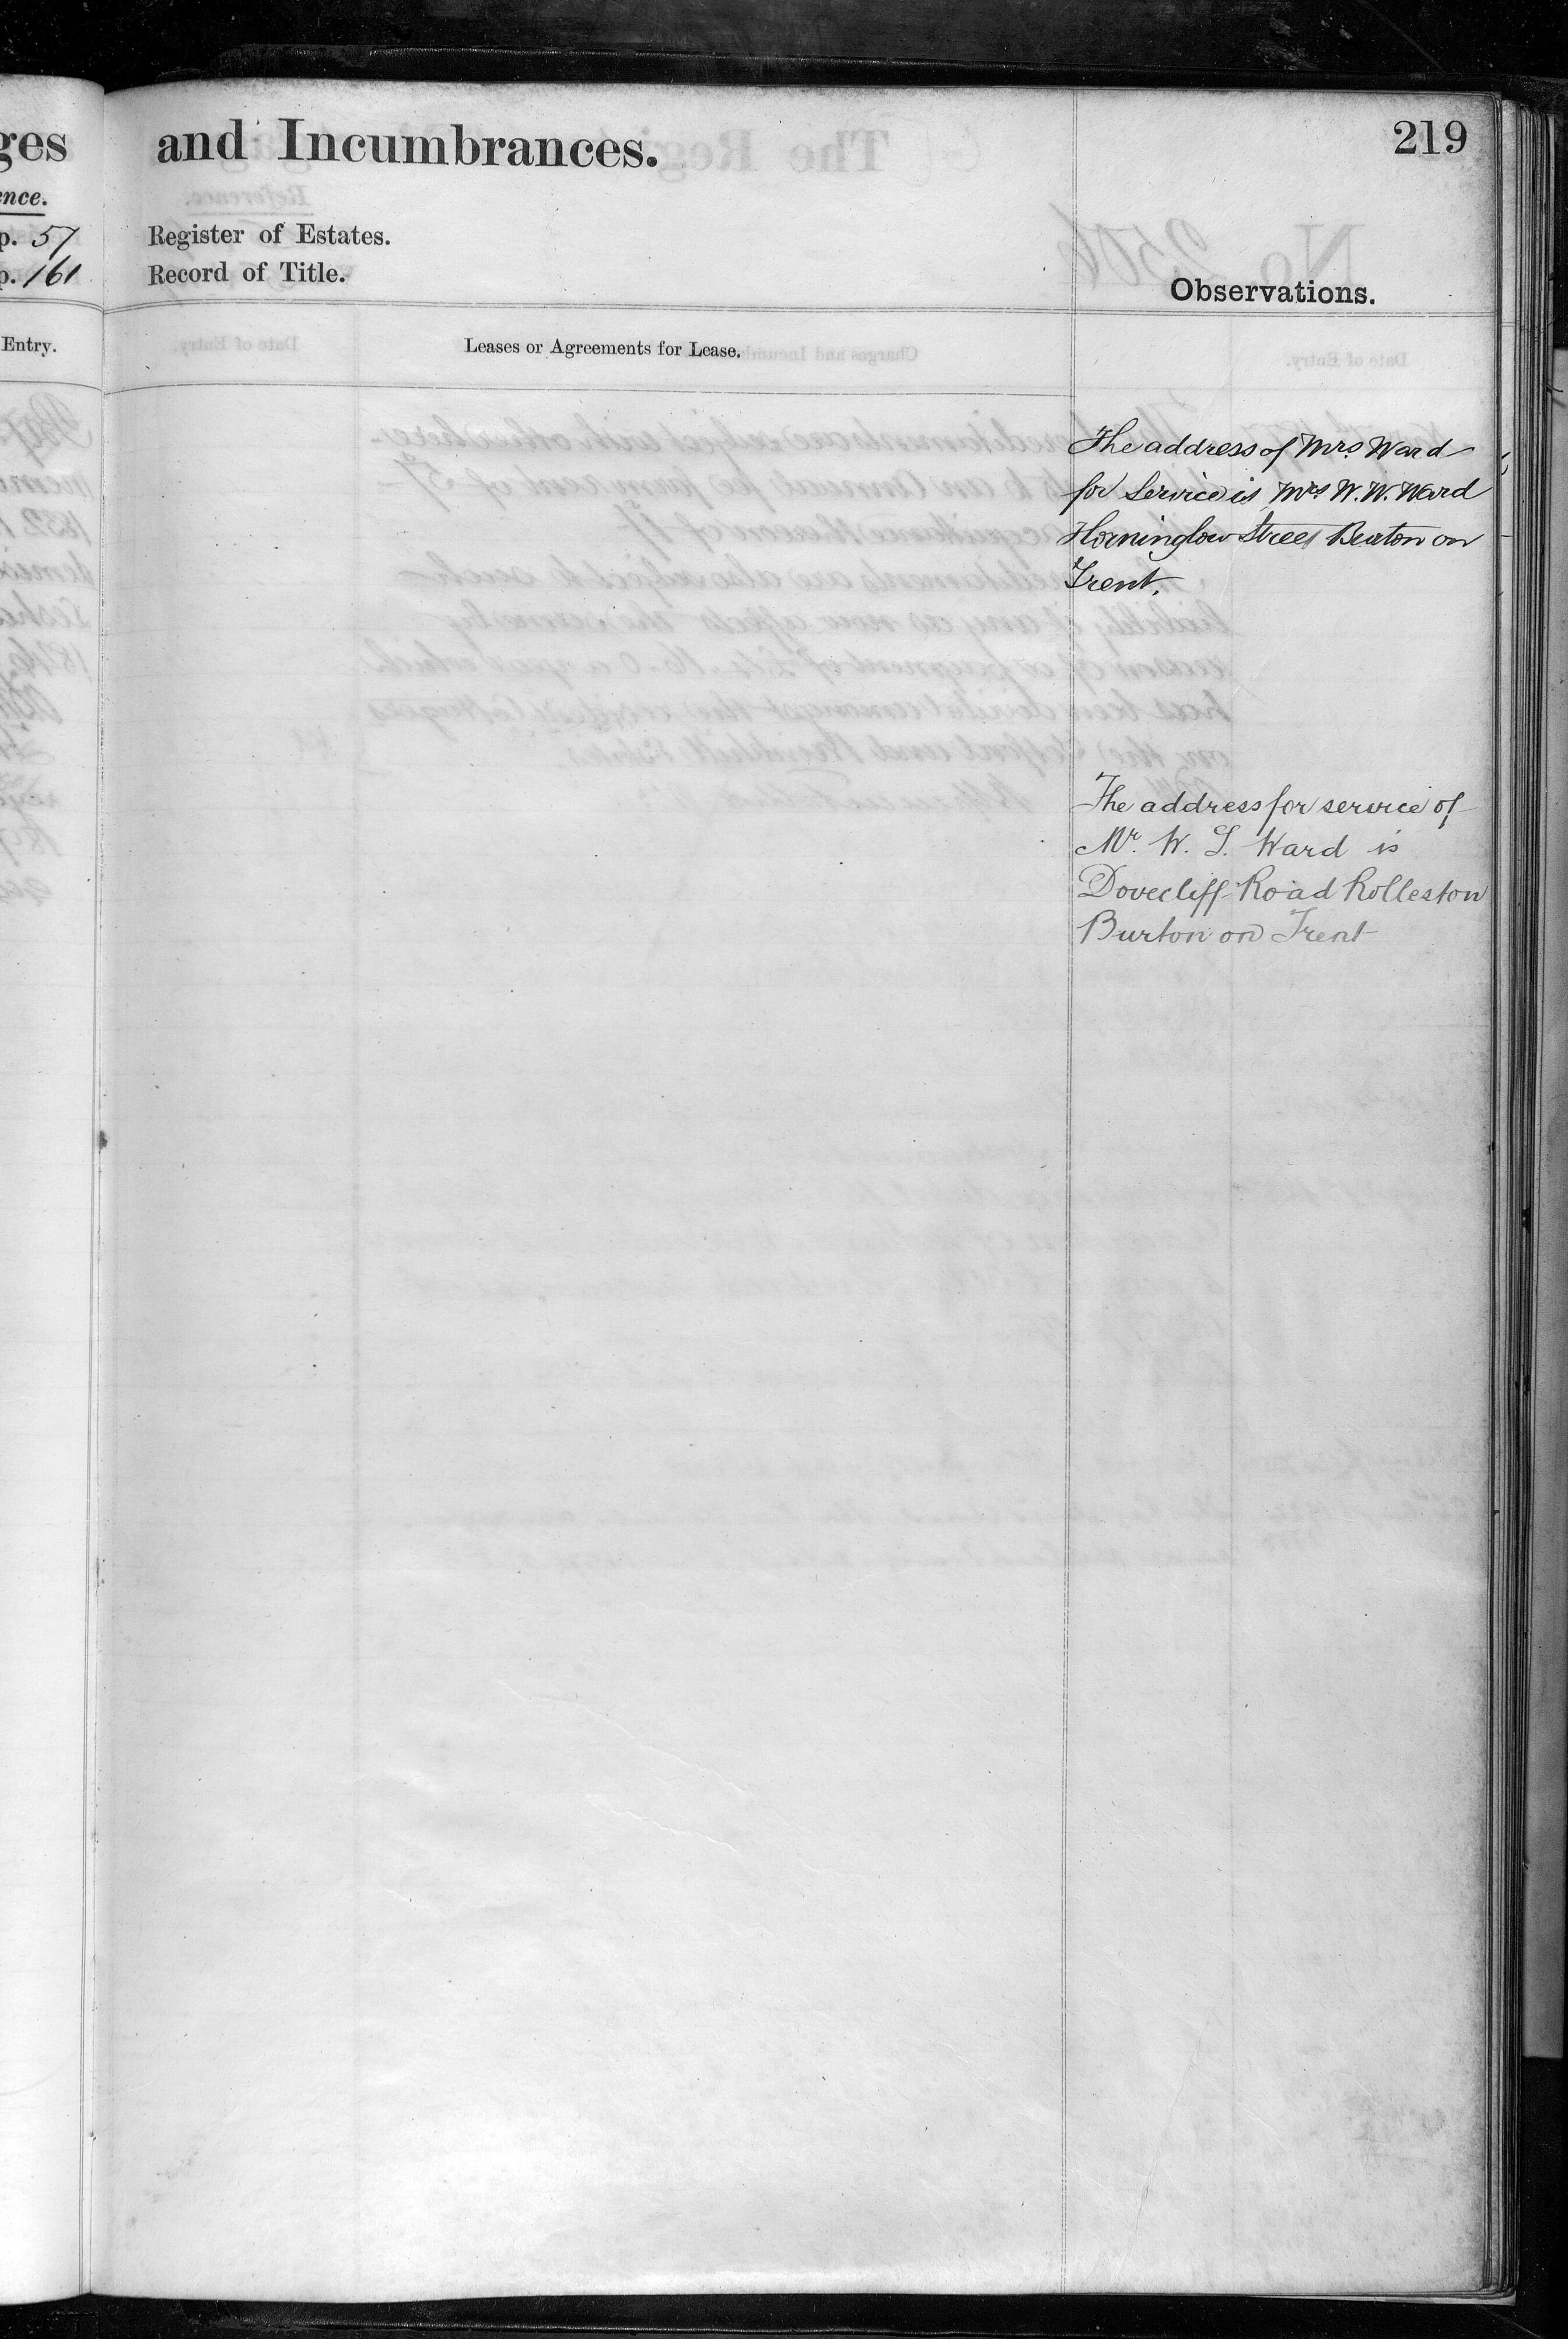 and Incumbrances.
219
Register of Estates.
Record of Title.
Observations.
Leases or Agreements for Lease.
The address of Mrs Ward
for Service is Mrs W. W. Ward
Horninglow Street Burton on
Trent.
The address for service of
Mr. W. S. Ward is
Dovecliff Road Rolleston
Burton on Trent
ges
ence.
p. 57
p. 161
Entry.